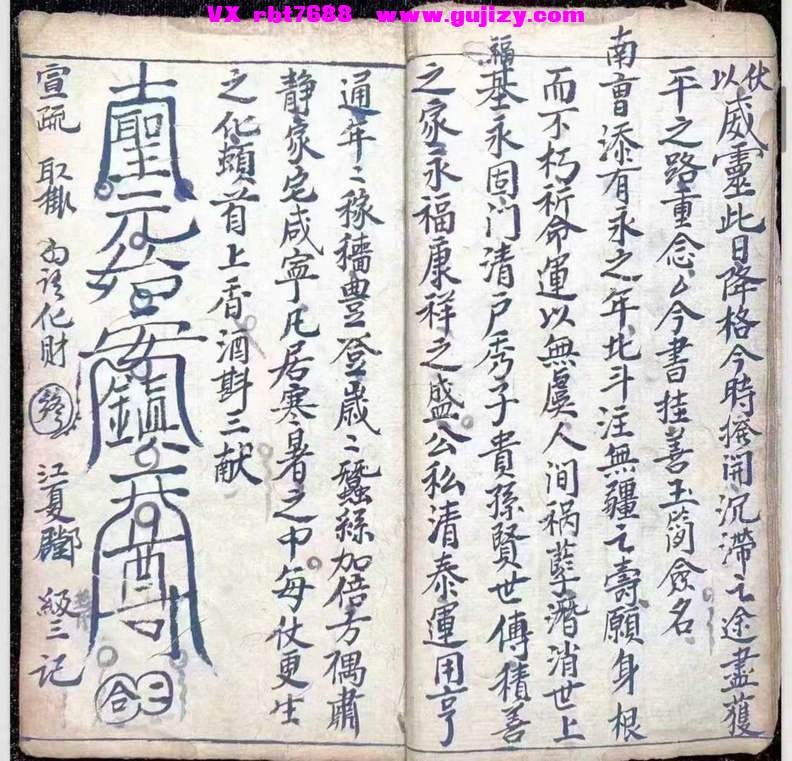 VX rbt7688 www.gujizy.com
伏以威靈此日降格今時捲開沉滯之途盡獲
平之路重念厶今書挂善玉简僉名
南曹添有永之年北斗注無疆之壽願身根
而不朽祈命運以無虞人间祸孽潛消世上
福基永固门清户秀子貴孫賢世傳積善
之家永福康祥之盛公私清泰運用亨
通年〻稼穡豊登歲〻蠶絲加倍方隅肅
静家宅咸寧凡居寒暑之中每仗更生
之化頓首上香酒斟三献
靈元始安鎮天尊
三合
宣疏 化財 江夏 級三记